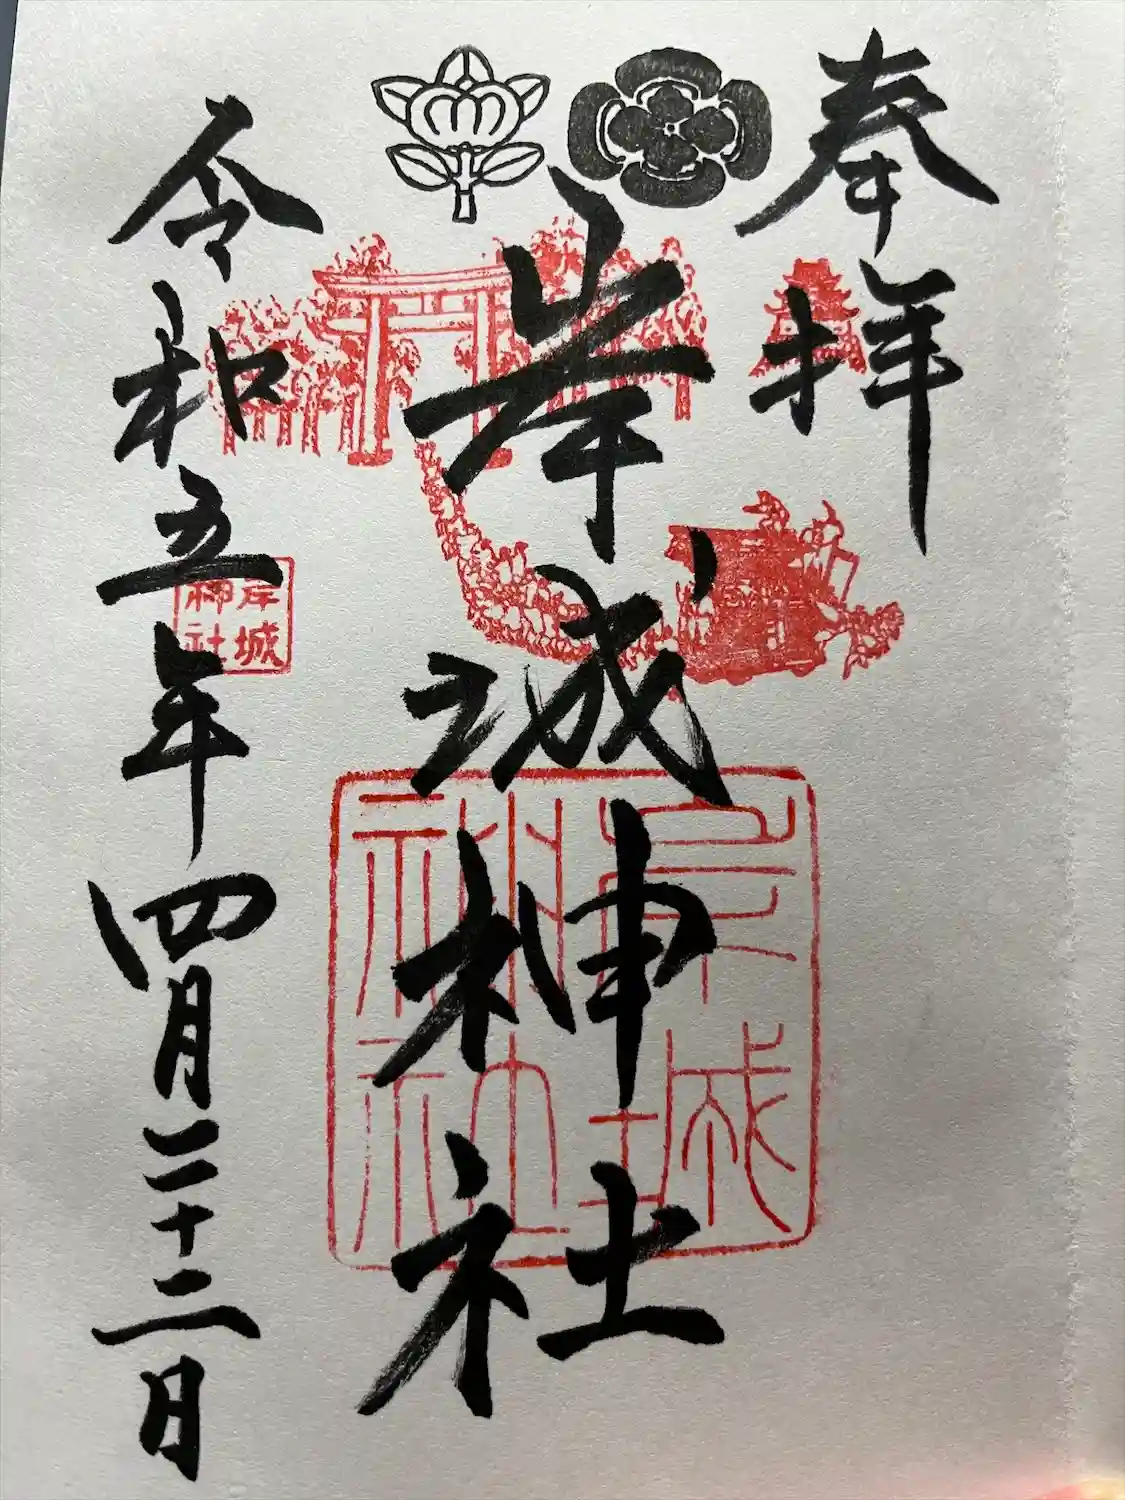 奉拝
岸城神社
岸城
神社
岸城
神社
令和五年四月二十二日